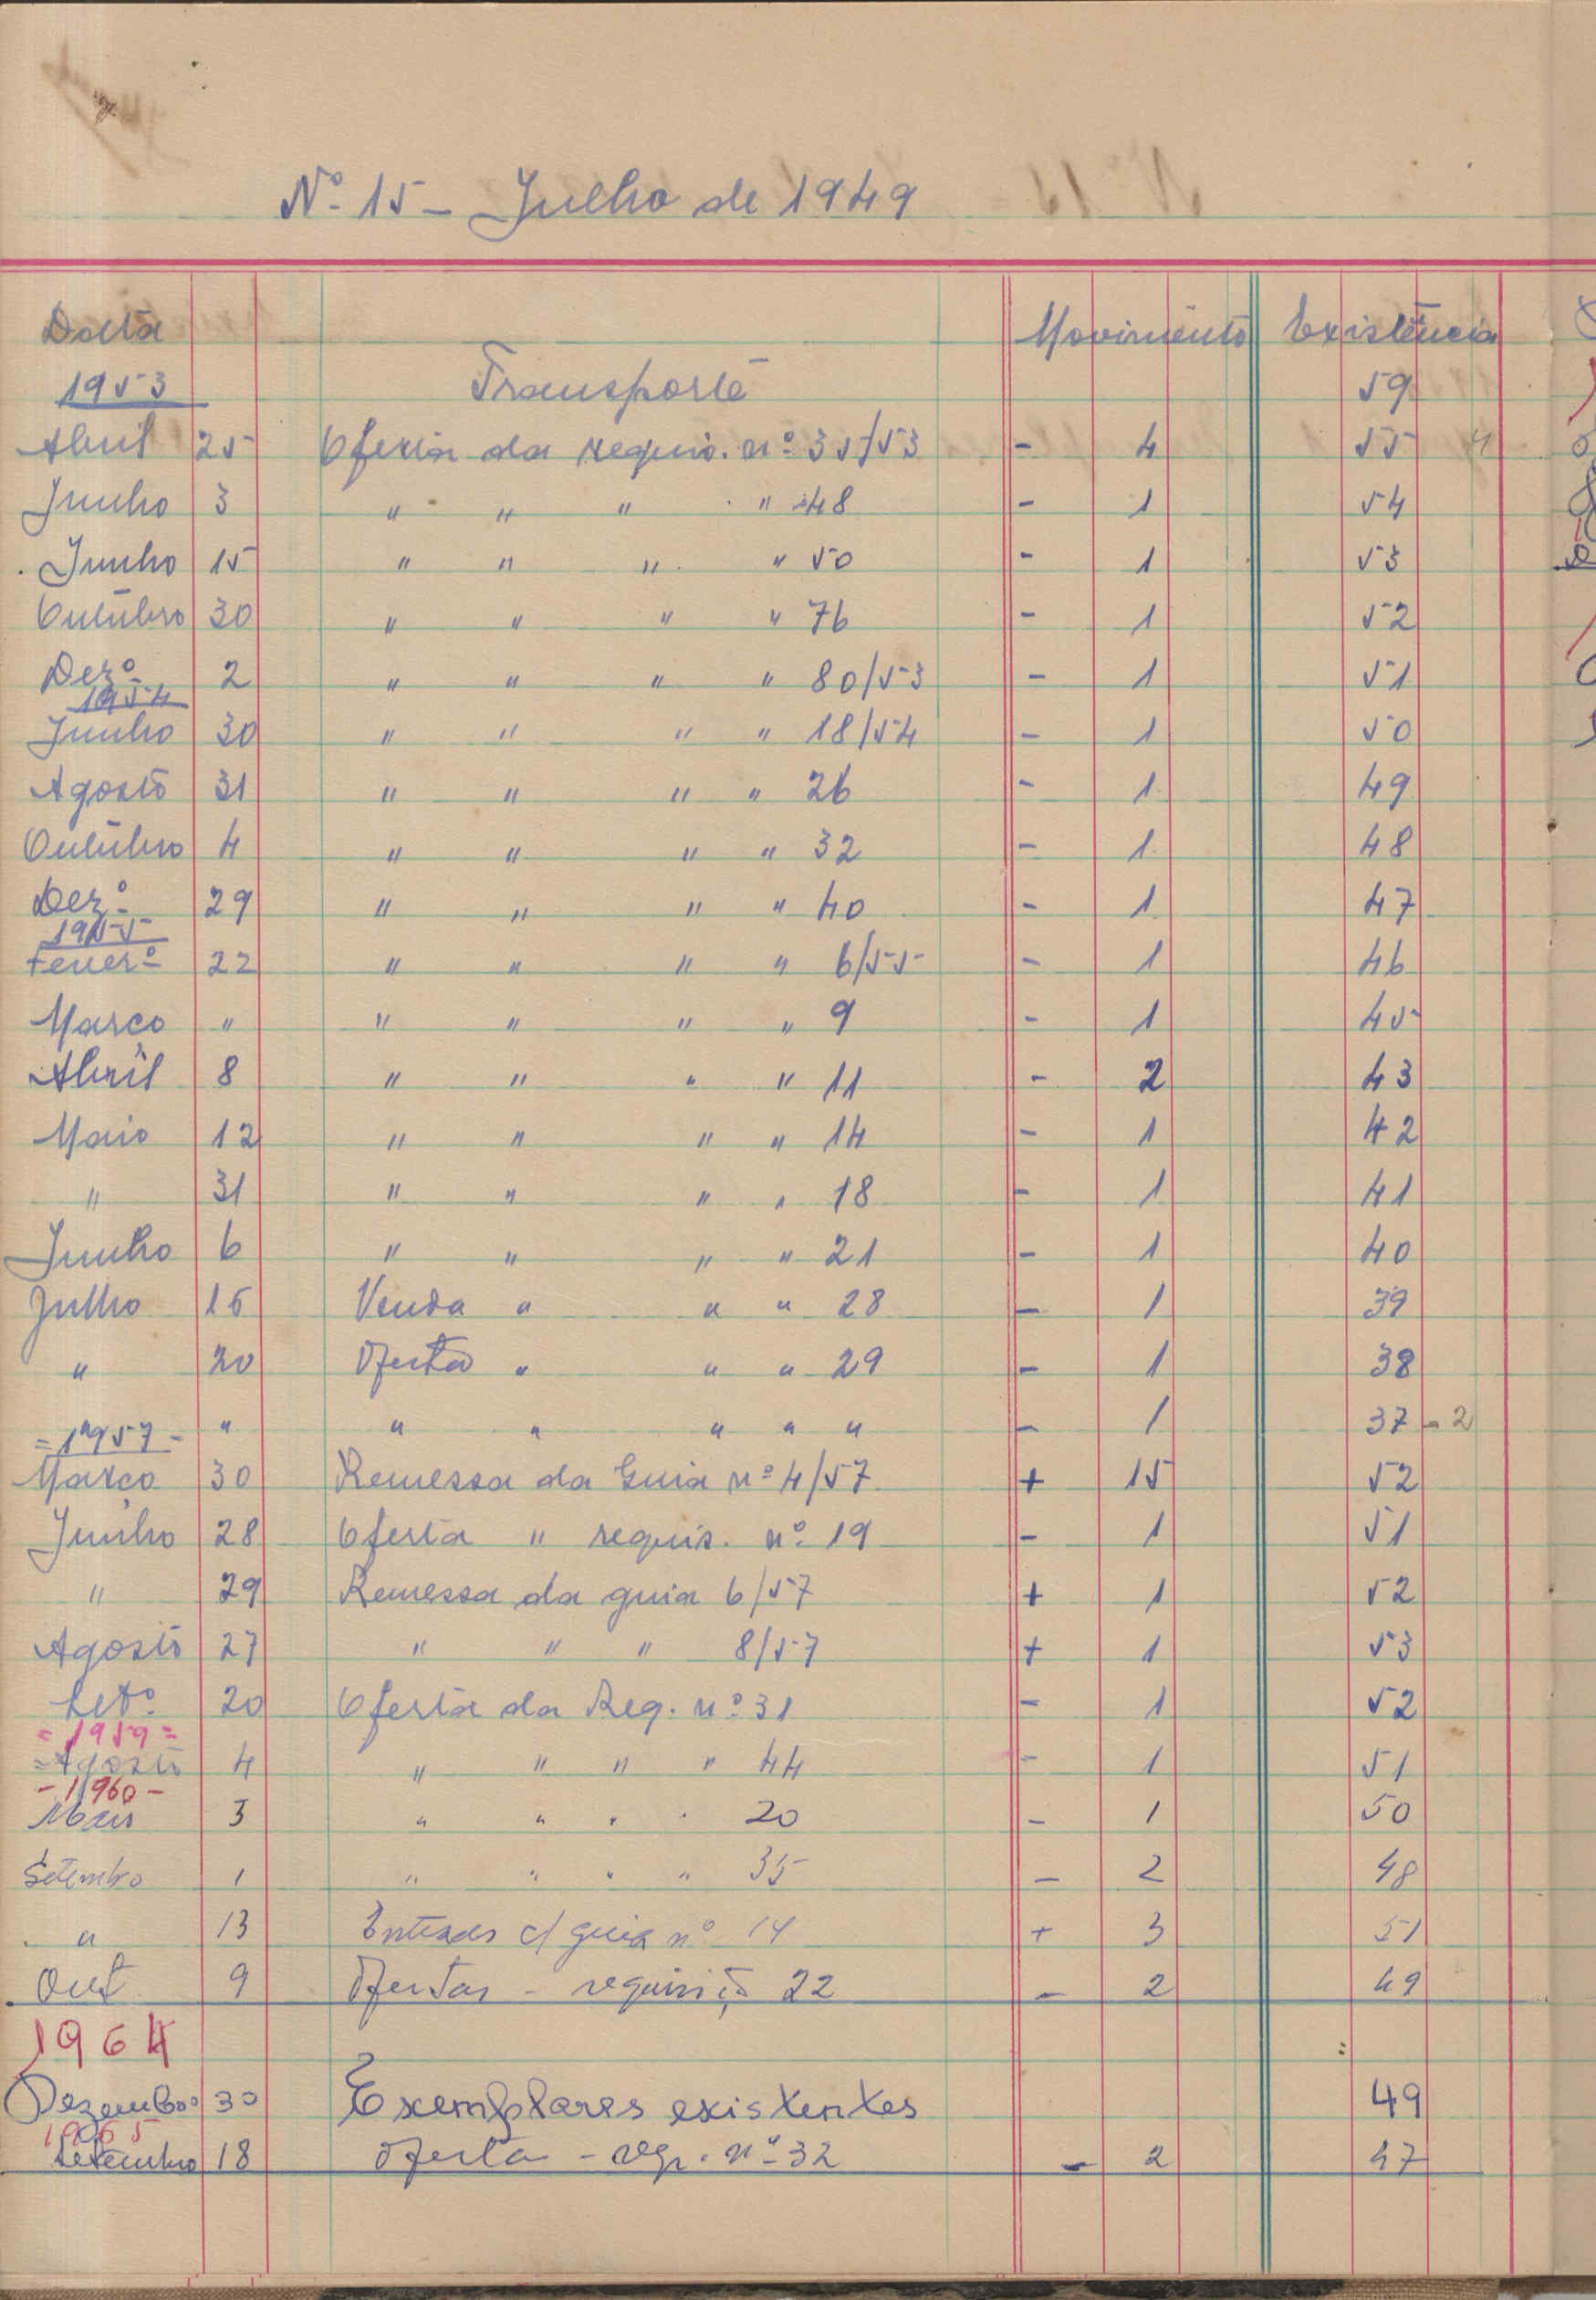 Nº 15 - Julho de 1949
Data Movimento Existência
1953 Transporte 59
Abril 25 Oferta da requis. nº 35/53 - 4 55
Junho 3 " " " " 48 - 1 54
Junho 15 " " " " 50 - 1 53
Outubro 30 " " " " 76 - 1 52
Dezº 2 " " " " 80/53 - 1 51
1954
Junho 30 " " " " 18/54 - 1 50
Agosto 31 " " " " 26 - 1 49
Outubro 4 " " " " 32 - 1 48
Dezº 29 " " " " 40 - 1 47
1955
Feverº 22 " " " " 6/55 - 1 46
Março " " " " " 9 - 1 45
Abril 8 " " " " 11 - 2 43
Maio 12 " " " " 14 - 1 42
" 31 " " " " 18 - 1 41
Junho 6 " " " " 21 - 1 40
Julho 16 Venda " " " 28 - 1 39
" 20 Oferta " " " 29 - 1 38
" " " " " " " - 1 37 - 2
= 1957 -
Março 30 Remessa da Guia nº 4/57 + 15 52
Junho 28 Oferta " requis. nº 19 - 1 51
" 29 Remessa da guia 6/57 + 1 52
Agosto 27 " " " 8/57 + 1 53
Setº 20 Oferta da Req. nº 31 - 1 52
= 1959 =
= Agosto 4 " " " " 44 - 1 51
- 1960 -
Maio 3 " " " " 20 - 1 50
Setembro 1 " " " " 35 - 2 48
" 13 Entradas c/ guia nº 14 + 3 51
Out 9 Ofertas - requisição 22 - 2 49
1964
Dezembro 30 Exemplares existentes 49
1965
Setembro 18 Oferta - req. nº 32 - 2 47